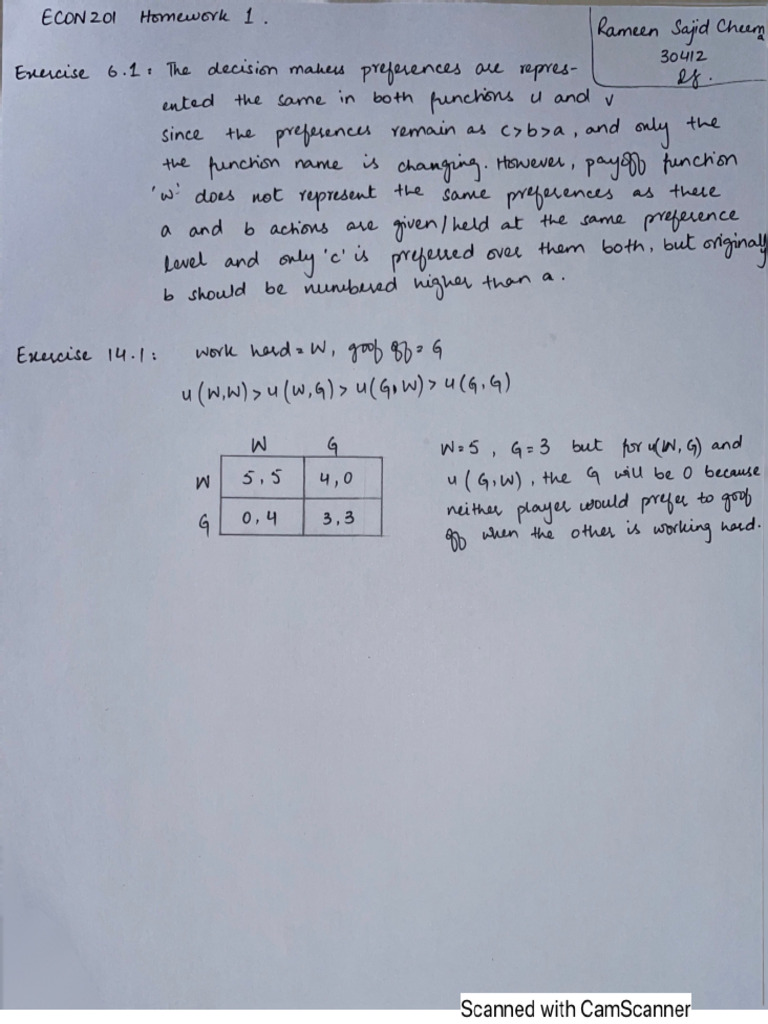 ECON201 Homework 1.
Rameen Sajid Cheema
30412
Exercise 6.1: The decision makers preferences are repres-
ented the same in both functions u and v
since the preferences remain as c>b>a, and only the
the function name is changing. However, payoff function
'w' does not represent the same preferences as there
a and b actions are given/held at the same preference
level and only 'c' is preferred over them both, but originally
b should be numbered higher than a.
Exercise 14.1: work hard = W, goof off = G
u(W,W) > u(W,G) > u(G,W) > u(G,G)
W G
W 5,5 4,0
G 0,4 3,3
W=5, G=3 but for u(W,G) and
u(G,W), the G will be 0 because
neither player would prefer to goof
off when the other is working hard.
Scanned with CamScanner